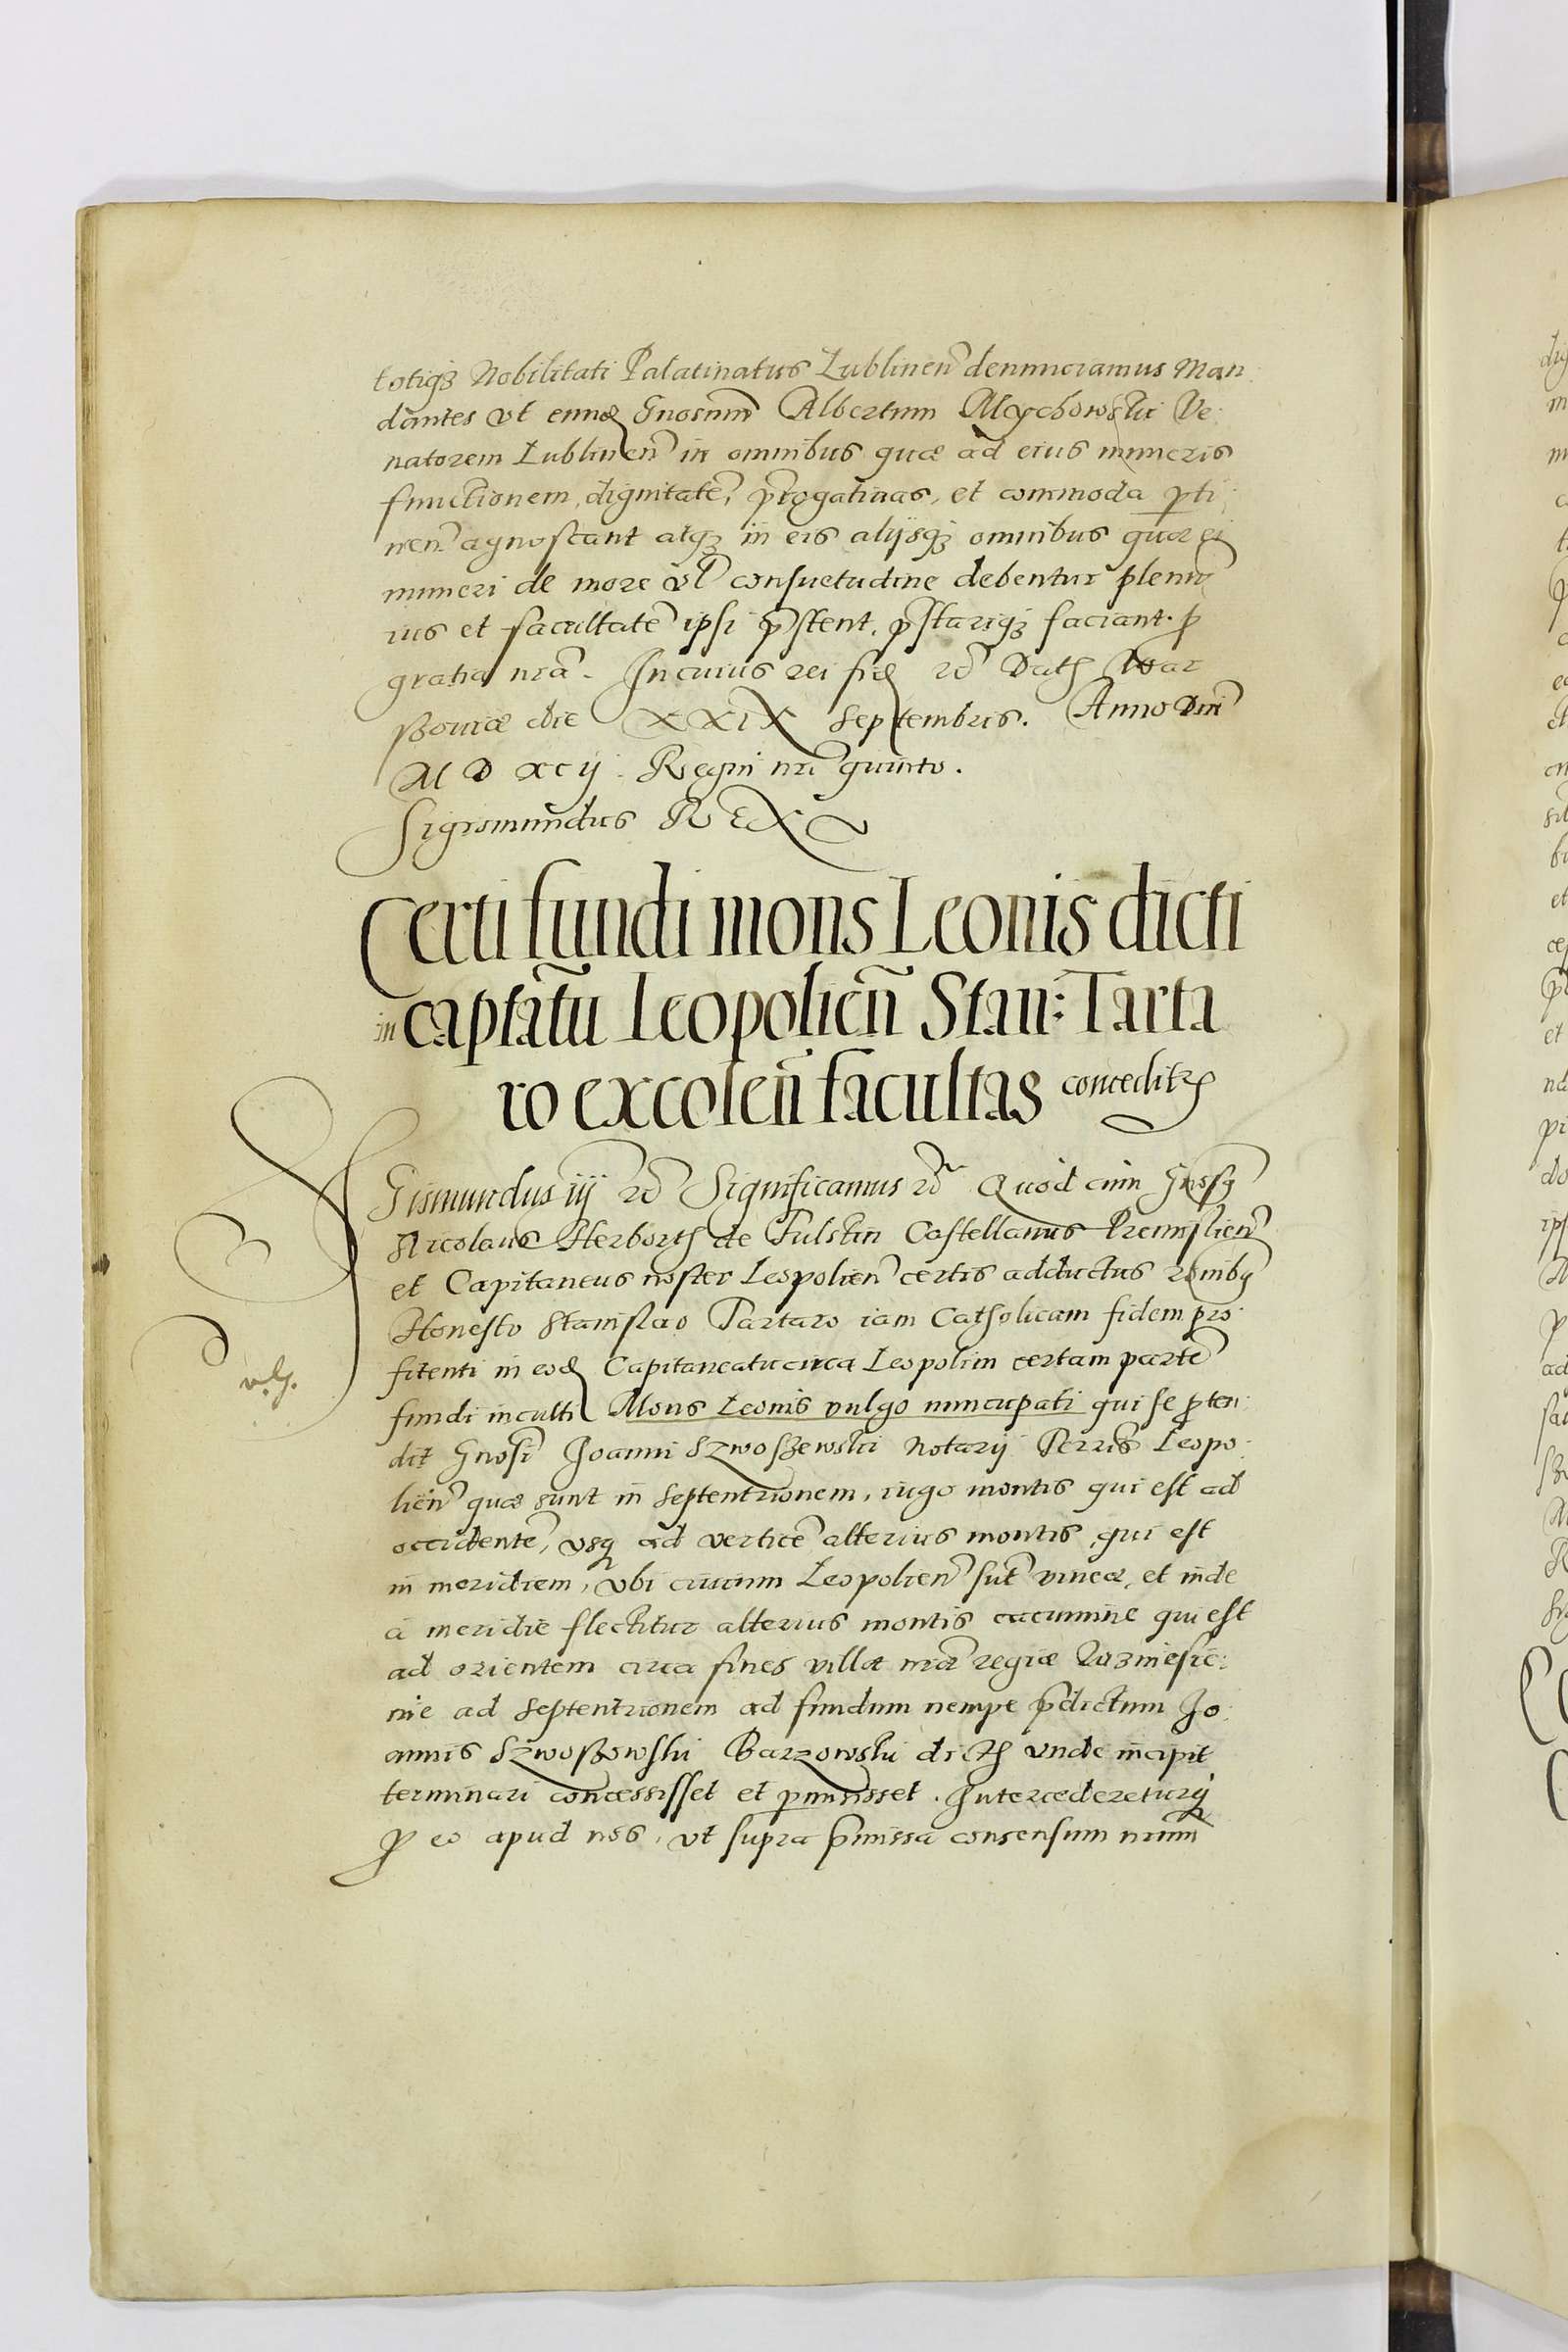 totiq3 Nobilitati Palatinatus Lublineñ denunciamus Man
dantes vt eund Gnosum Albertum Mychowski Ve
natorem Lublineñ in omnibus quæ ad eius muneris
functionem, dignitatẽ, p̃rogatiuas, et commoda p̱ti
neñ agnoscant atq3 in eis alijsq3 omnibus quæ ei
muneri de more vl consuetudine debentur plena
ius et facultatẽ ipsi p̃stent, p̃stariq3 faciant. p
gratia nrã. In cuius rei fid rc̃ Dath War
ßouiæ die XXIX Septembris. Anno Dni
M D xcij. Regni nri quinto.
Sigismundus REX
Certi fundi mons Leonis dicti
in captãtu Leopolieñ Stan: Tarta
ro excoleñ facultas conceditr
SIgismundus iij rc̃ Significamus rc̃ Quod cum Gnsss
Nicolaus Herborth de Fulstin Castellanus Premislieñ
et Capitaneus noster Leopolieñ certis adductus rõnibg
Honesto Stanislao Tartaro iam Catholicam fidem pro
fitenti in eod Capitaneatu circa Leopolim certam partẽ
fundi inculti Mons Leonis vulgo nuncupati qui se p̱ten
dit Gnosi Joanni Szwoszewski Notarij Terris Leopo
lieñ quæ sunt in Septentrionem, iugo montis qui est ad
occidentẽ, vsq ad verticẽ alterius montis, qui est
in meridiem, vbi ciuium Leopolieñ sũt vineæ, et inde
a meridie flectitur alterius montis cacumine qui est
ad orientem circa fines villæ nrã regiæ
nie ad Septentrionem ad fundum nempe p̃dictum Jo
annis Szwoßowski Barzowski dicth vnde incipit
terminari concessisset et p̱misisset. Intercedereturq
p eo apud nos, vt supra p̃missa consensum nrum